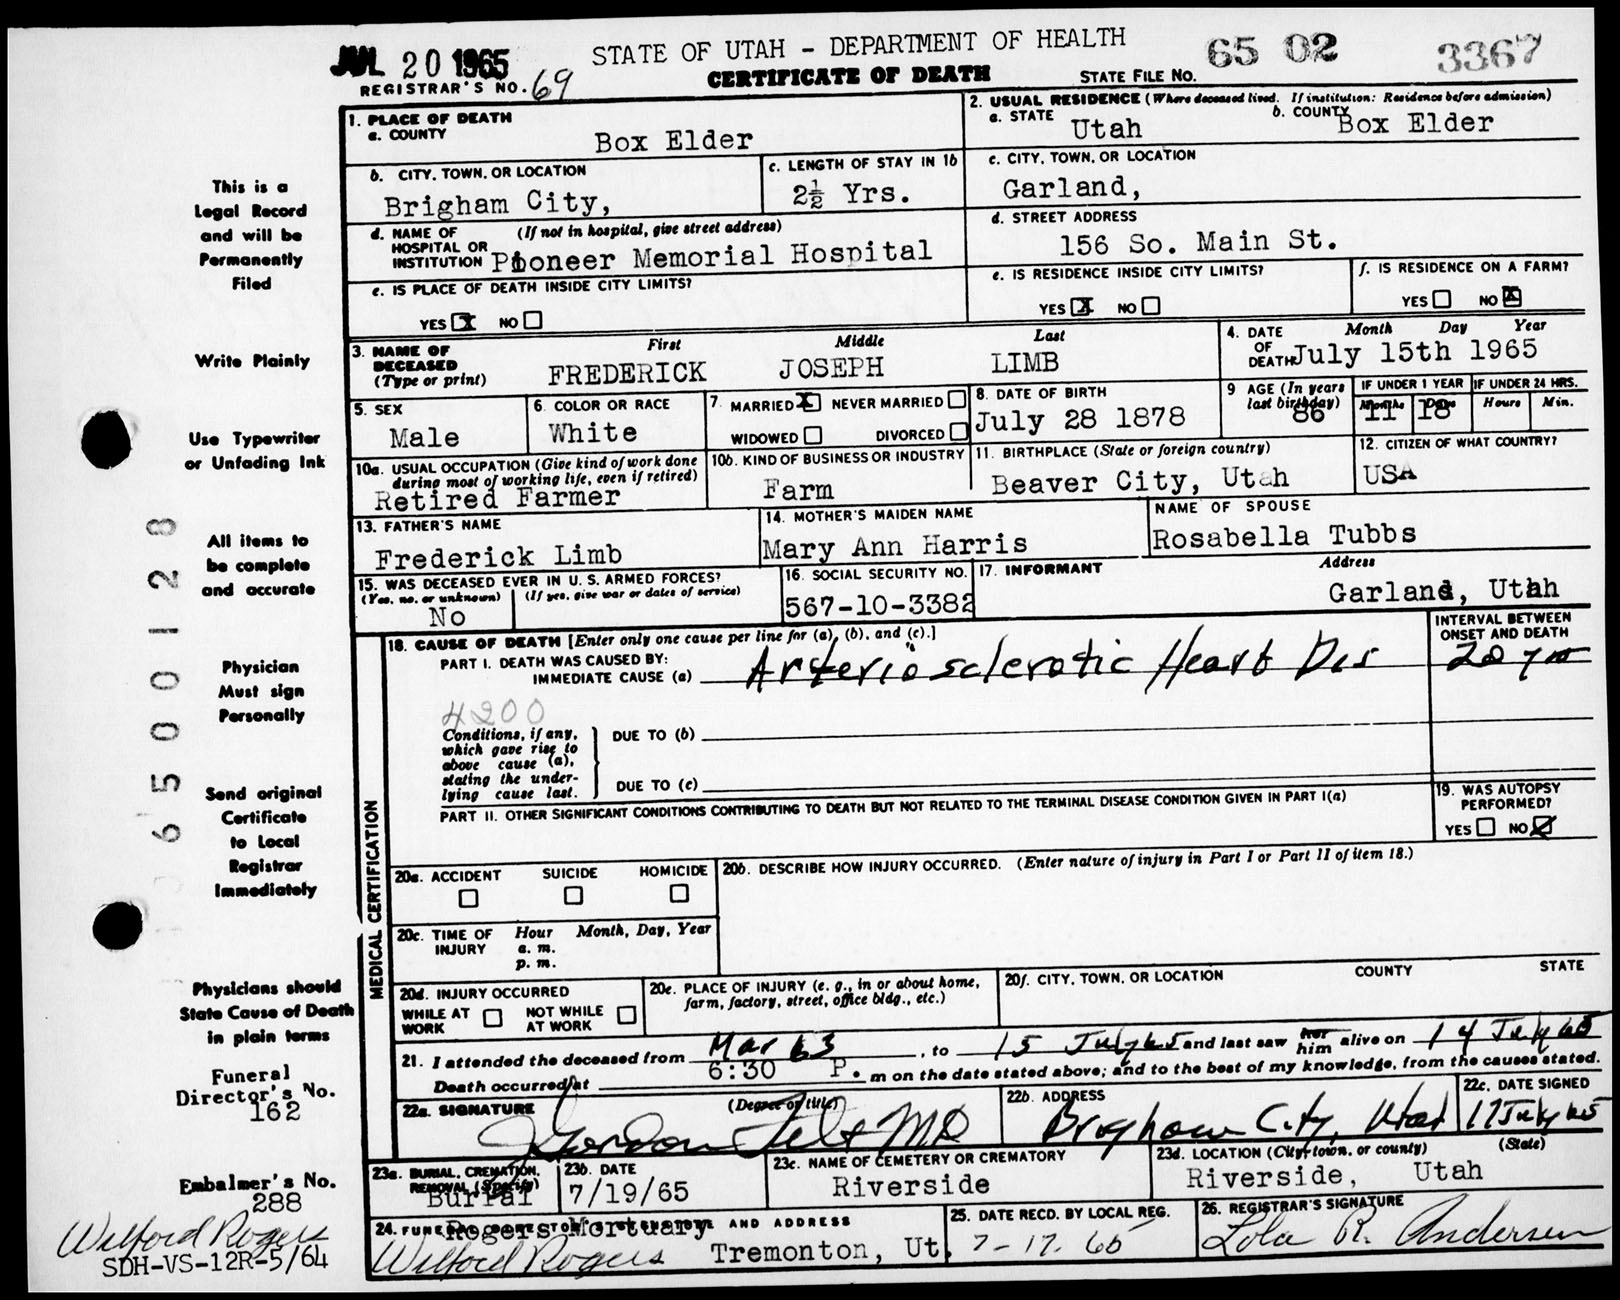 JUL 20 1965
STATE OF UTAH - DEPARTMENT OF HEALTH
65 02 3367
CERTIFICATE OF DEATH
STATE FILE NO.
REGISTRAR'S NO. 69
1. PLACE OF DEATH
a. COUNTY
Box Elder
2. USUAL RESIDENCE (Where deceased lived. If institution: Residence before admission)
a. STATE Utah
b. COUNTY Box Elder
b. CITY, TOWN, OR LOCATION
Brigham City,
c. LENGTH OF STAY IN 1b
2½ Yrs.
c. CITY, TOWN, OR LOCATION
Garland,
d. NAME OF HOSPITAL OR INSTITUTION (If not in hospital, give street address)
Pioneer Memorial Hospital
d. STREET ADDRESS
156 So. Main St.
e. IS PLACE OF DEATH INSIDE CITY LIMITS?
YES X NO
e. IS RESIDENCE INSIDE CITY LIMITS?
YES X NO
f. IS RESIDENCE ON A FARM?
YES NO X
3. NAME OF DECEASED (Type or print)
First Middle Last
FREDERICK JOSEPH LIMB
4. DATE OF DEATH
Month Day Year
July 15th 1965
5. SEX
Male
6. COLOR OR RACE
White
7. MARRIED X NEVER MARRIED
WIDOWED DIVORCED
8. DATE OF BIRTH
July 28 1878
9 AGE (In years last birthday)
86
IF UNDER 1 YEAR
Months Days
11 18
IF UNDER 24 HRS.
Hours Min.
10a. USUAL OCCUPATION (Give kind of work done during most of working life, even if retired)
Retired Farmer
10b. KIND OF BUSINESS OR INDUSTRY
Farm
11. BIRTHPLACE (State or foreign country)
Beaver City, Utah
12. CITIZEN OF WHAT COUNTRY?
USA
13. FATHER'S NAME
Frederick Limb
14. MOTHER'S MAIDEN NAME
Mary Ann Harris
NAME OF SPOUSE
Rosabella Tubbs
15. WAS DECEASED EVER IN U. S. ARMED FORCES?
(Yes, no, or unknown) (If yes, give war or dates of service)
No
16. SOCIAL SECURITY NO.
567-10-3382
17. INFORMANT Address
Garland, Utah
MEDICAL CERTIFICATION
18. CAUSE OF DEATH [Enter only one cause per line for (a), (b), and (c).]
PART I. DEATH WAS CAUSED BY:
IMMEDIATE CAUSE (a) Arteriosclerotic Heart Dis
INTERVAL BETWEEN ONSET AND DEATH
20 yrs
4200
Conditions, if any, which gave rise to above cause (a), stating the underlying cause last.
DUE TO (b)
DUE TO (c)
PART II. OTHER SIGNIFICANT CONDITIONS CONTRIBUTING TO DEATH BUT NOT RELATED TO THE TERMINAL DISEASE CONDITION GIVEN IN PART I(a)
19. WAS AUTOPSY PERFORMED?
YES NO
20a. ACCIDENT SUICIDE HOMICIDE
20b. DESCRIBE HOW INJURY OCCURRED. (Enter nature of injury in Part I or Part II of item 18.)
20c. TIME OF INJURY
Hour Month, Day, Year
a. m.
p. m.
20d. INJURY OCCURRED
WHILE AT WORK NOT WHILE AT WORK
20e. PLACE OF INJURY (e. g., in or about home, farm, factory, street, office bldg., etc.)
20f. CITY, TOWN, OR LOCATION COUNTY STATE
21. I attended the deceased from Mar 63, to 15 July 65 and last saw her him alive on 14 July 65
Death occurred at 6:30 P. m on the date stated above; and to the best of my knowledge, from the causes stated.
22a. SIGNATURE (Degree or title)
J Gordon Felt MD
22b. ADDRESS
Brigham City, Utah
22c. DATE SIGNED
17 July 65
23a. BURIAL, CREMATION, REMOVAL (Specify)
Burial
23b. DATE
7/19/65
23c. NAME OF CEMETERY OR CREMATORY
Riverside
23d. LOCATION (City, town, or county) (State)
Riverside, Utah
24. FUNERAL DIRECTOR'S SIGNATURE AND ADDRESS
Rogers Mortuary
Wilford Rogers Tremonton, Ut.
25. DATE RECD. BY LOCAL REG.
7-17-65
26. REGISTRAR'S SIGNATURE
Lola R. Andersen
This is a
Legal Record
and will be
Permanently
Filed
Write Plainly
Use Typewriter
or Unfading Ink
All items to
be complete
and accurate
Physician
Must sign
Personally
Send original
Certificate
to Local
Registrar
Immediately
Physicians should
State Cause of Death
in plain terms
Funeral
Director's No.
162
Embalmer's No.
288
Wilford Rogers
SDH-VS-12R-5/64
6500128